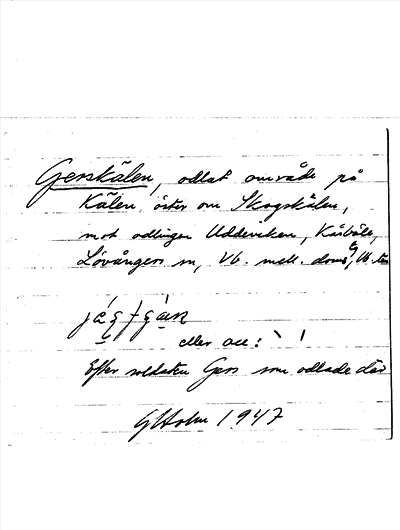 Gerskälen, odlat område på
Kälen öster om Skogskälen,
mot odlingen Uddeviken, Kårböle,
Lövången m, Vb. mell. doms,
eller acc: ` ´
Efter soldaten Gers som odlade där
G Holm 1947